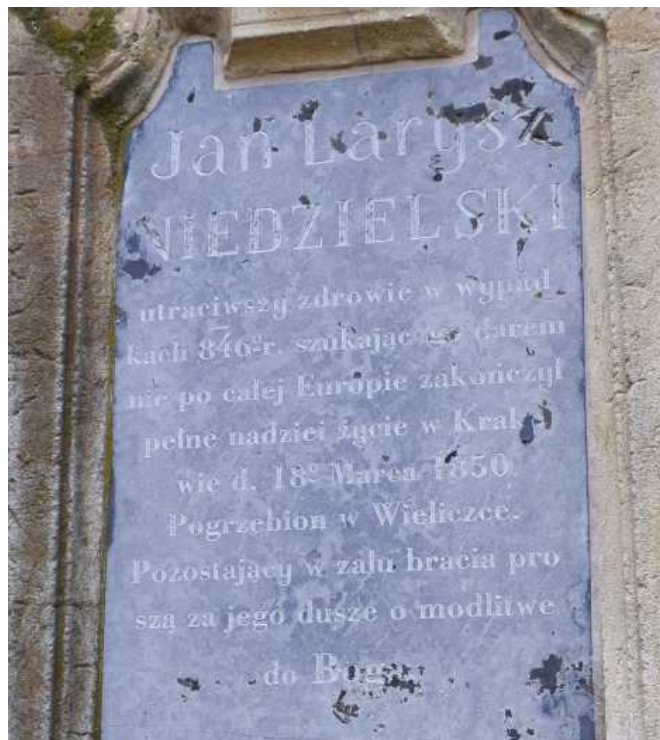 Jan Larysz
NIEDZIELSKI
utraciwszy zdrowie w wypad
kach 846º r. szukając go darem
nie po całej Europie zakończył
pełne nadziei życie w Krako
wie d. 18º Marca 1850
Pogrzebion w Wieliczce.
Pozostający w zalu bracia pro
szą za jego dusze o modlitwe
do Boga